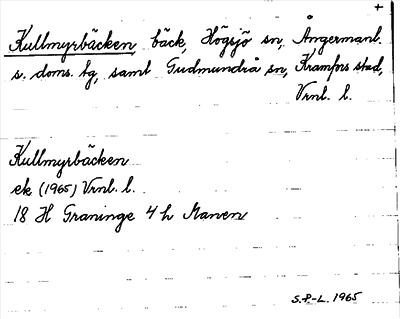 +
Kullmyrbäcken, bäck, Högsjö sn, Ångermanl.
s. doms. tg, samt Gudmundrå sn, Kramfors stad,
Vrnl. l.
Kullmyrbäcken
ek (1965) Vrnl. l.
18 H Graninge 4 h Manen
S.P-L. 1965